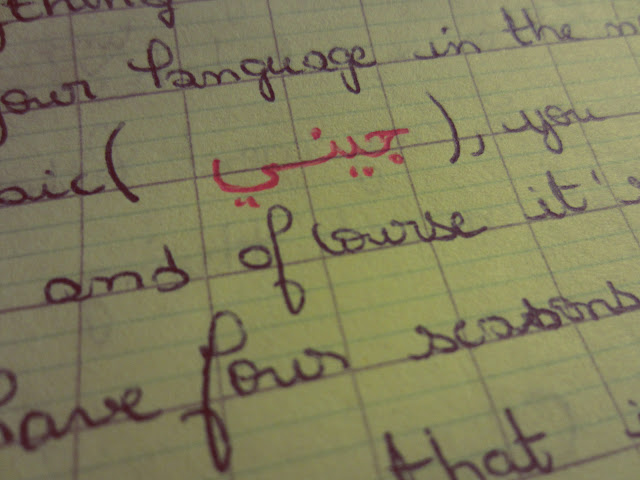 thing
your language in the
aic( جيني ), you
and of course it's
have four seasons
that